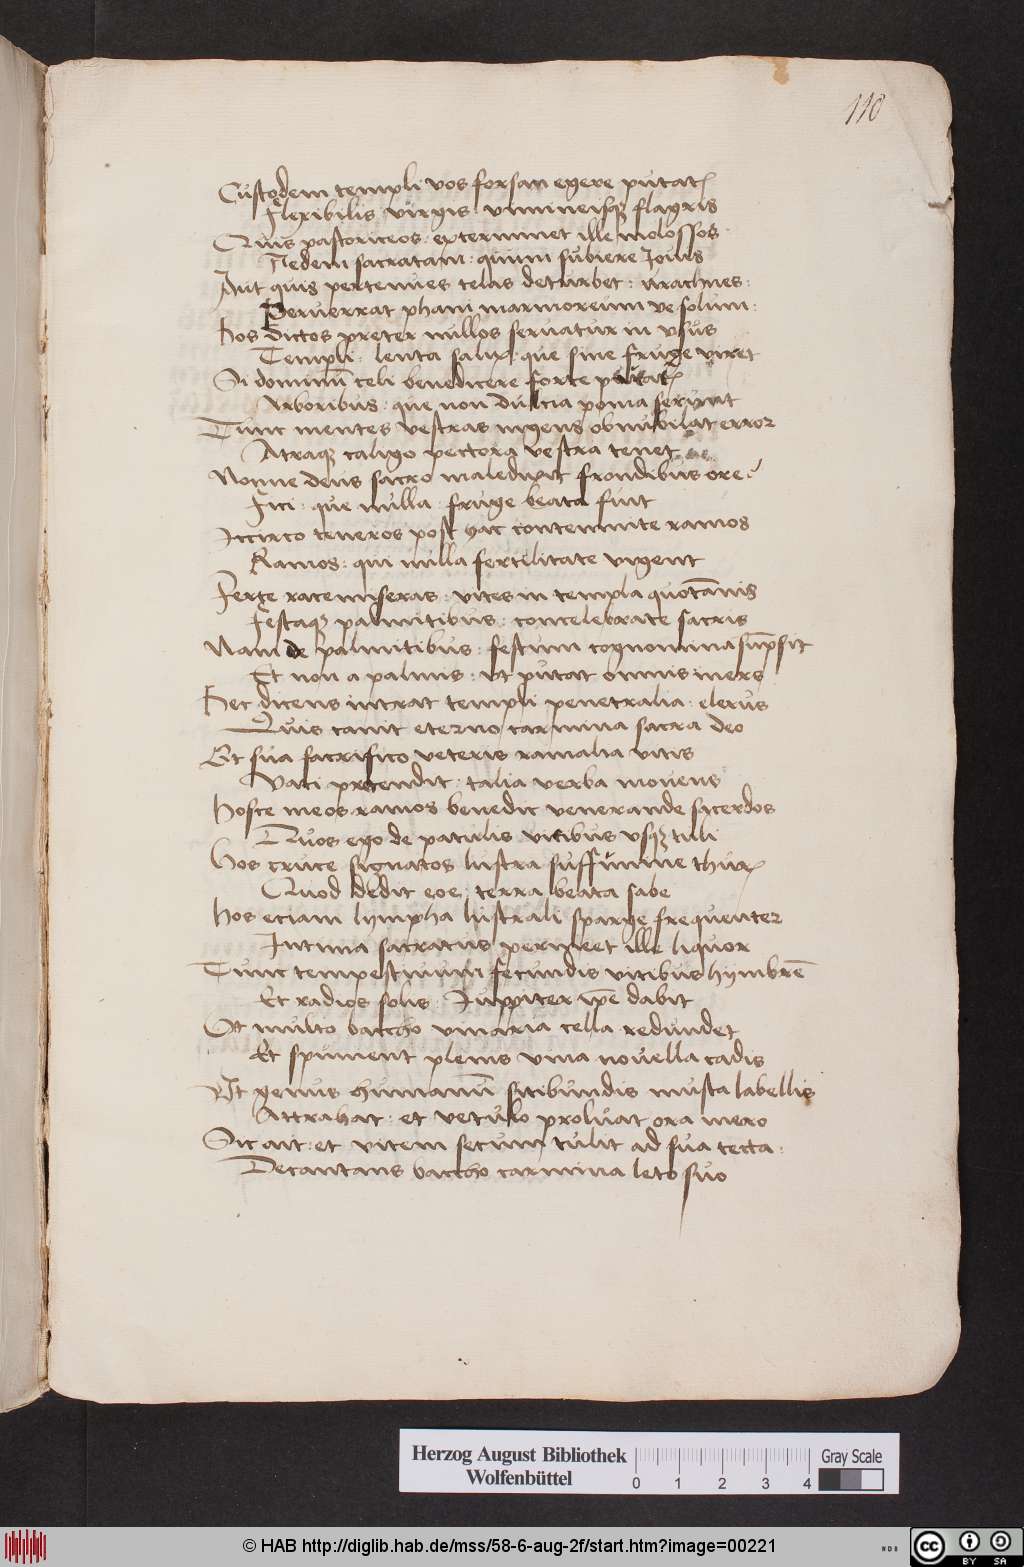 110
Custodem templi vos forsan egere putatꝭ
Flexibilis virgis vimineisqꝫ flagris
Quis pastoriceos exterminet ille molossos
Aedem sacratam quum subiere Iovis
Aut quis pertenues telas deturbet : arachnes :
Peruerrat phani marmoreum ve solum :
Hos dictos preter nullos servatur in vsus
Templi : lenta salix : que sine fruge viret
Si dominū celi benedicere forte putatꝭ
Arboribus : que non dulcia poma serunt
Tunc mentes vestras ingens obnubilat error
Atraqꝫ caligo pectora vestra tenet
Nonne deus sacro maledixit frondibus ore
Fici : que nulla fruge beata fuit
Iccirco teneros post hac contemnite ramos
Ramos : qui nulla fertilitate vigent
Ferte racemiferas : vites in templa quotānis
Festaqꝫ palmitibus : concelebrate sacris
Nam de palmitibus : festum cognomina sūpsit
Et non a palmis : ut putat omnis iners
Hec dicens intrat templi penetralia : clerus
Quis canit eterno carmina sacra deo
Et sua sacrifico veteris ramalia vitis
Vati pretendit : talia verba movens
Hosce meos ramos benedic venerande sacerdos
Quos ego de patulis vitibus vsqꝫ tuli
Hos cruce signatos lustra suffimine thurꝭ
Quod dedit eoe : terra beata sabe
Hos etiam lympha lustrali sparge frequenter
Intima sacratus permeet ille liquor
Tunc tempestivum fecundis vitibus hymbrē
Et radios solis Iuppiter ip̄e dabit
Ut multo baccho vinaria cella redundet
Et spument plenis vina novella cadis
Ut genus humanū sitibundis musta labellis
Attrahat : et vetulo proluat ora mero
Sic ait : et vitem secum tulit ad sua tecta :
Decantans baccho carmina leto suo
Herzog August Bibliothek
Wolfenbüttel
0 1 2 3 4
Gray Scale
© HAB http://diglib.hab.de/mss/58-6-aug-2f/start.htm?image=00221
cc BY SA